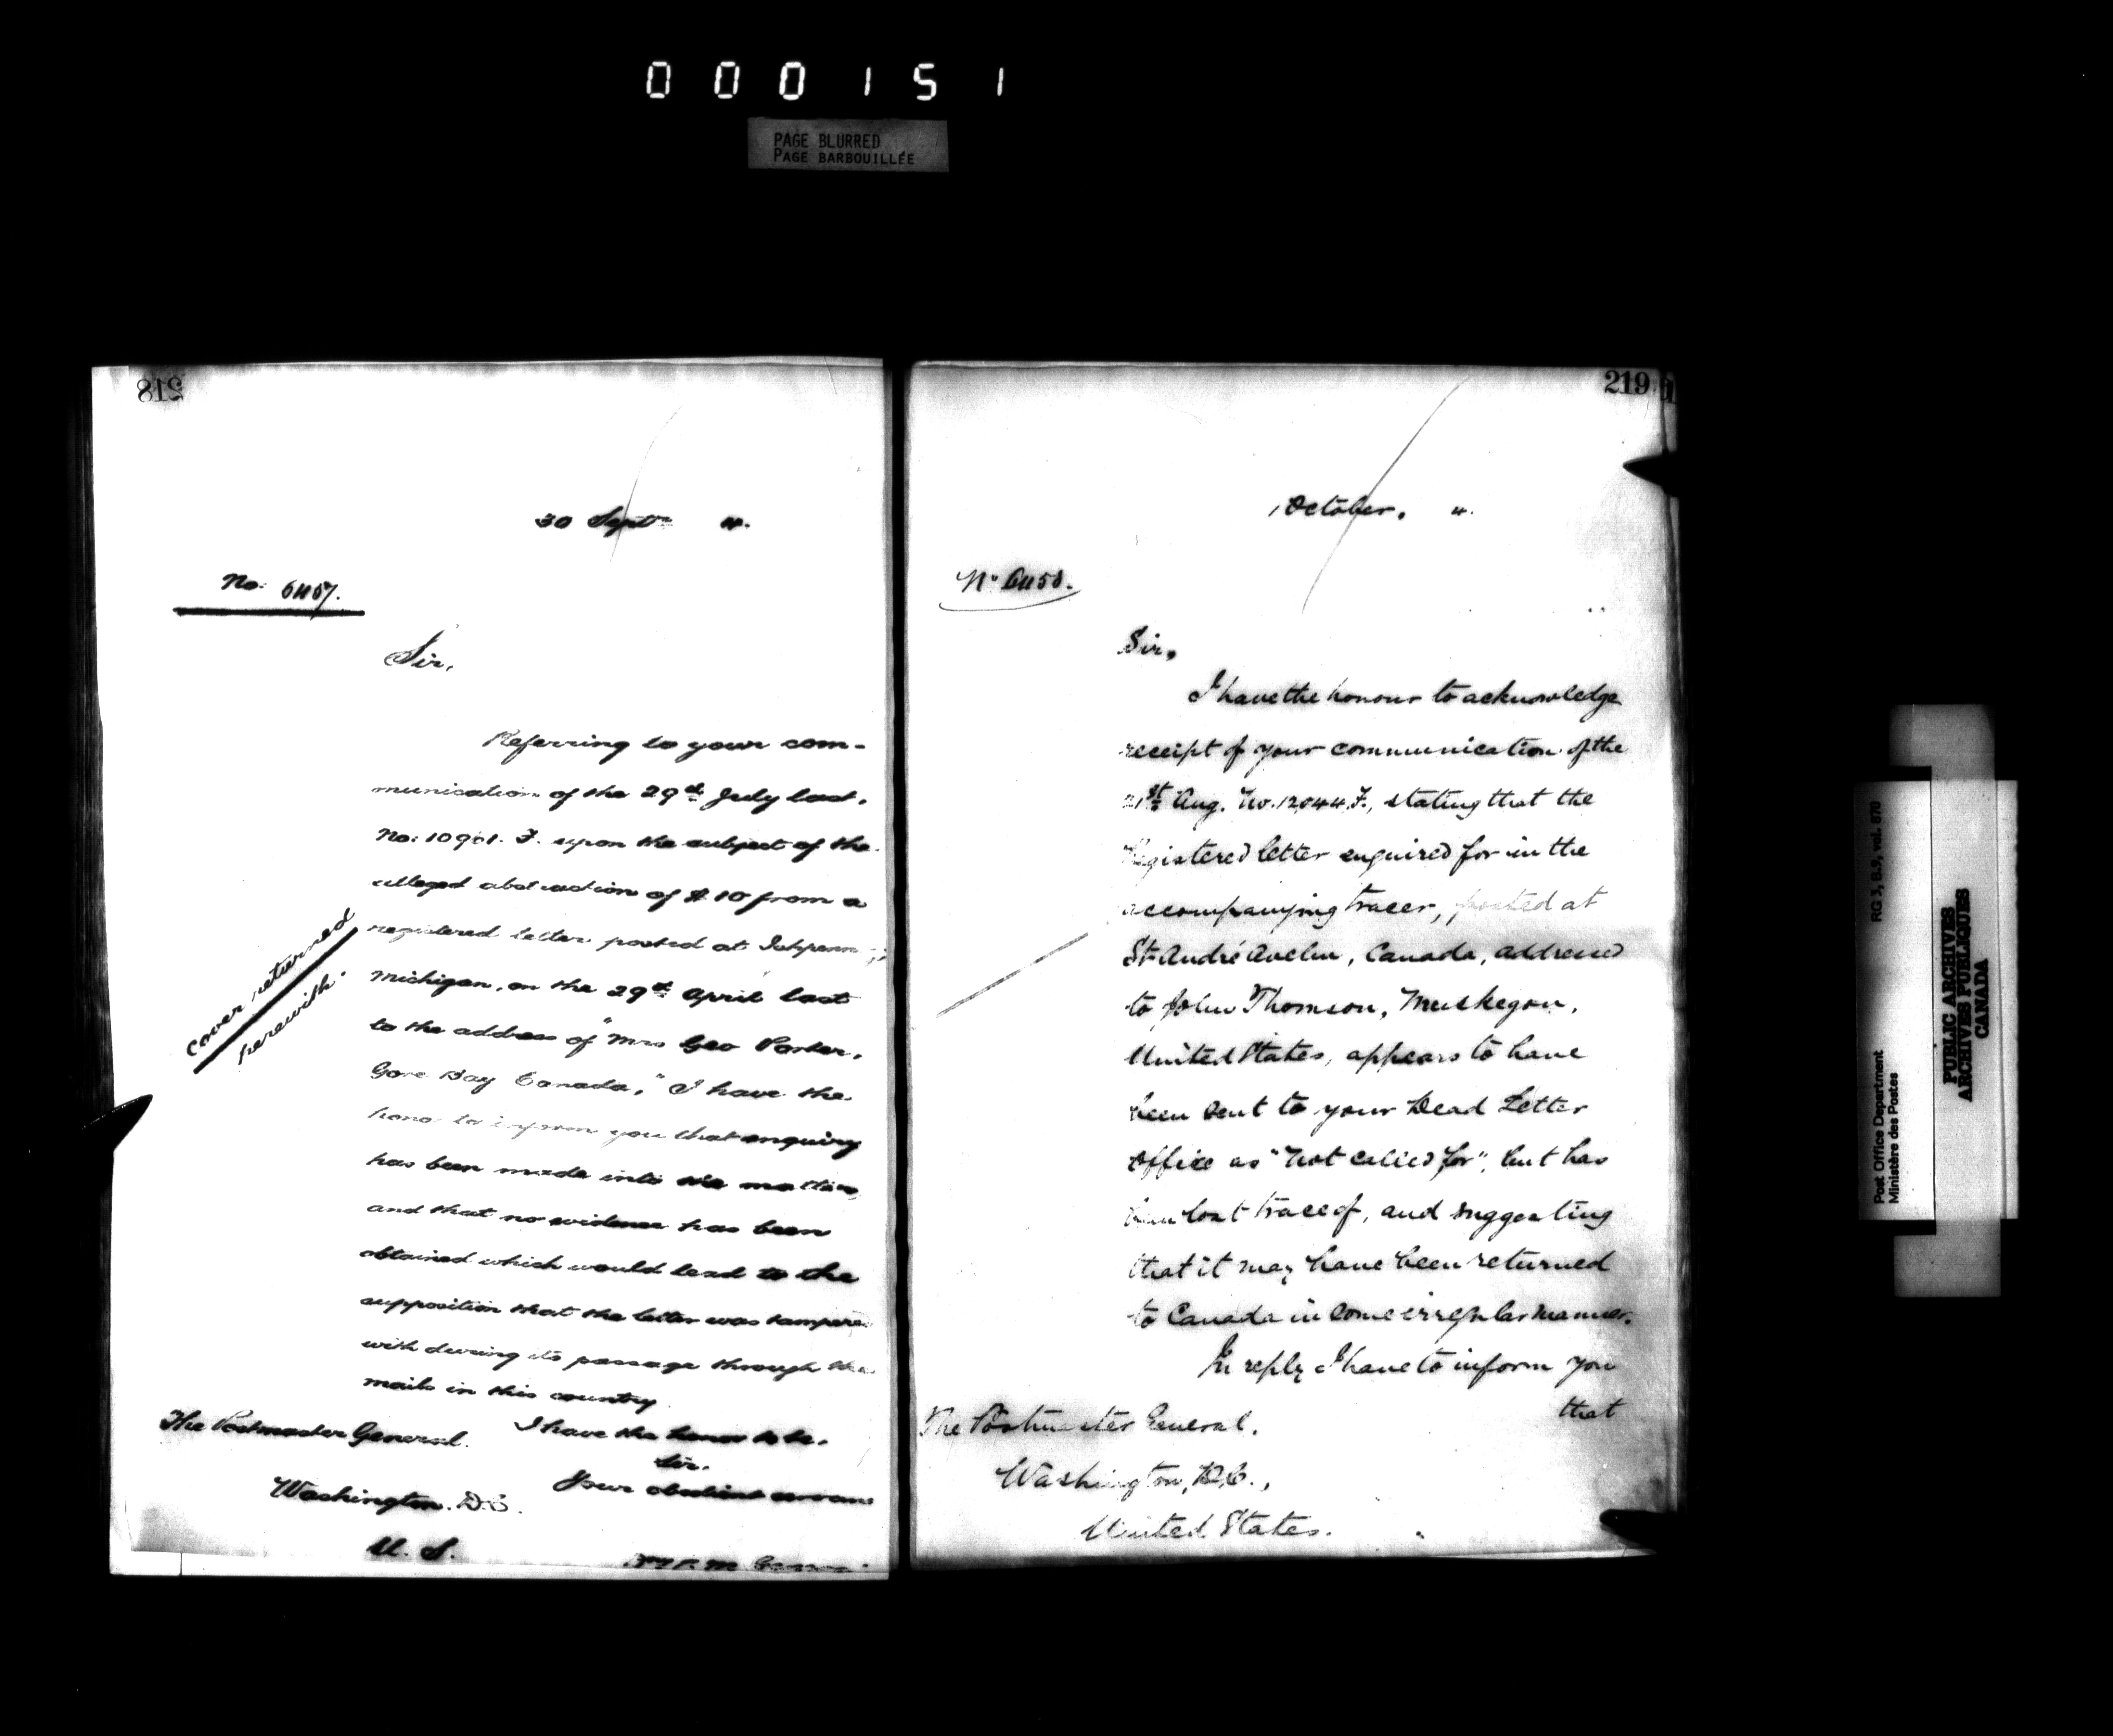 000151
PAGE BLURRED
PAGE BARBOUILLÉE
218
30 Sept 4.
No: 6457.
Sir,
Referring to your com-
munication of the 29th July last,
No: 10901. F. upon the subject of the
alleged abstraction of $10 from a
registered letter posted at
Michigan, on the 29th April last
to the address of "Mrs Geo Porter,
Gore Bay Canada," I have the
honor to inform you that enquiry
has been made into the matter,
and that no evidence has been
obtained which would lead to the
supposition that the letter was tampered
with during its passage through the
mails in this country
I have the honor to be,
Sir,
Your obedient servant
cover returned
herewith.
The Postmaster General.
Washington. D.C.
U. S.
219
1 October, 4.
No 6458.
Sir,
I have the honour to acknowledge
receipt of your communication of the
21st Aug. No. 12044.F., stating that the
Registered letter enquired for in the
accompanying tracer, posted at
St André Avelin, Canada, addressed
to John Thomson, Muskegon,
United States, appears to have
been sent to your Dead Letter
Office as "not called for", but has
been lost trace of, and suggesting
that it may have been returned
to Canada in some irregular manner.
In reply I have to inform you
that
The Postmaster General,
Washington, D.C.,
United States.
RG 3, B.9, vol. 870
Post Office Department
Ministère des Postes
PUBLIC ARCHIVES
ARCHIVES PUBLIQUES
CANADA